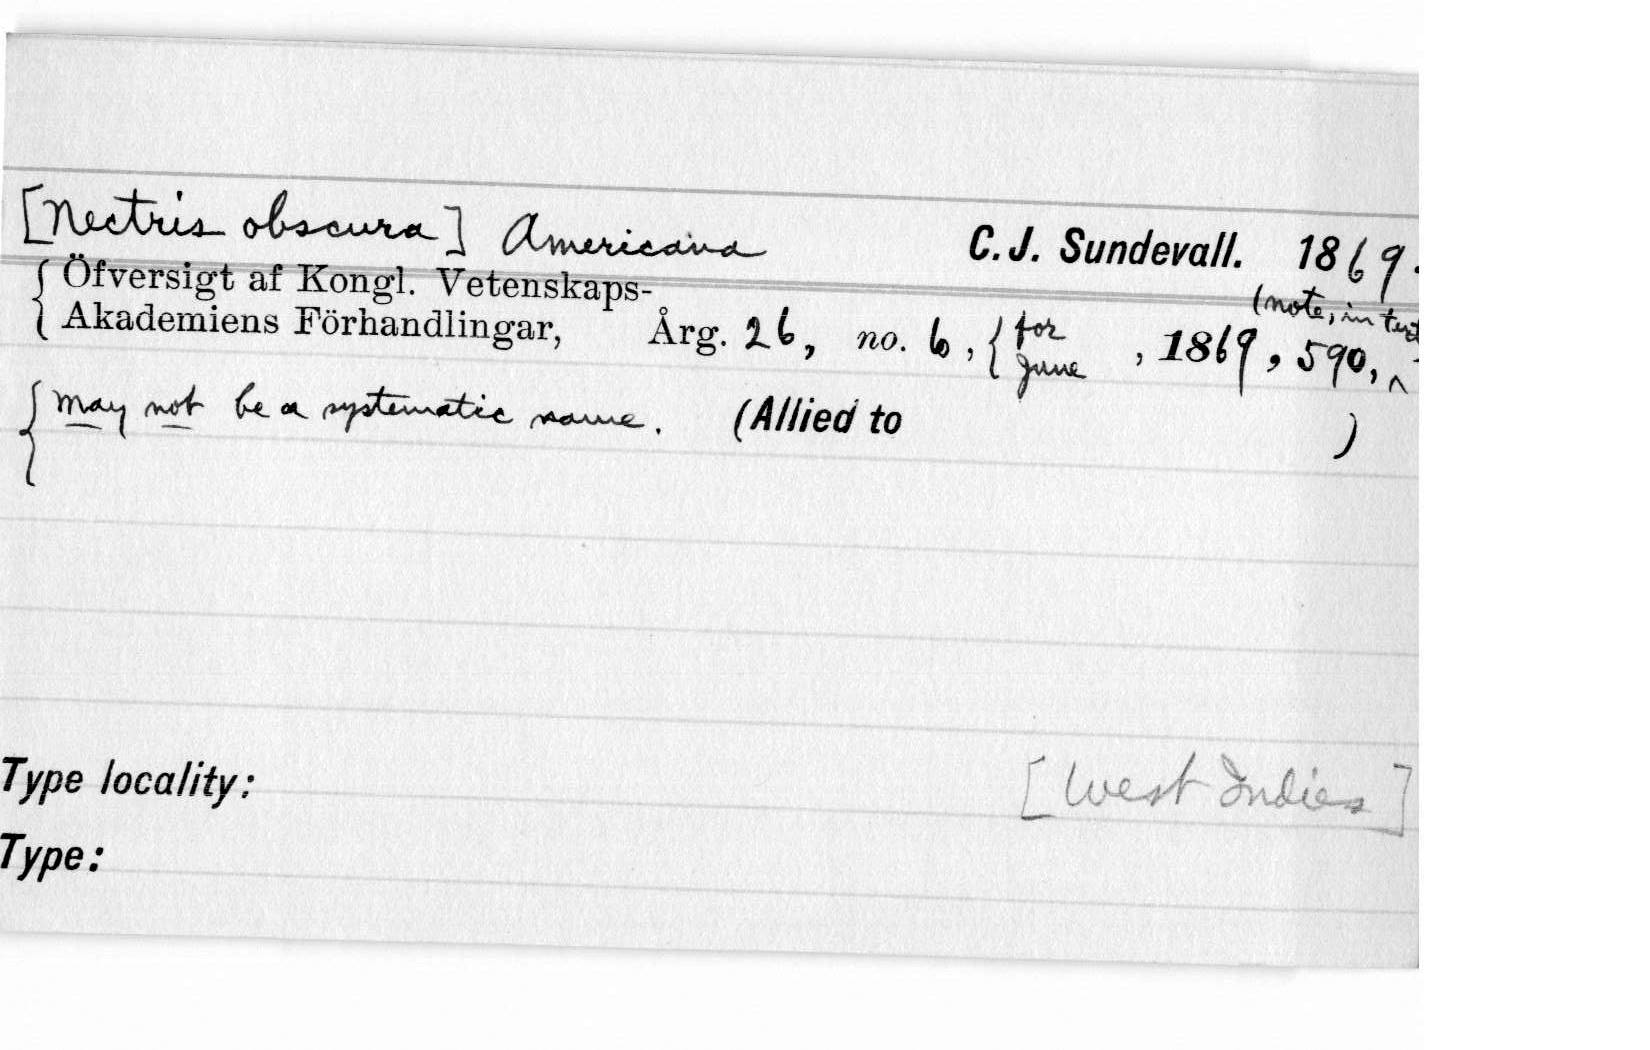 [Nectris obscura] Americana C. J. Sundevall. 1869.
(note, in text
{ Öfversigt af Kongl. Vetenskaps-
Akademiens Förhandlingar, Årg. 26, no. 6, { for June , 1869, 590, ^
{ may not be a systematic name. (Allied to )
Type locality: [West Indies]
Type: